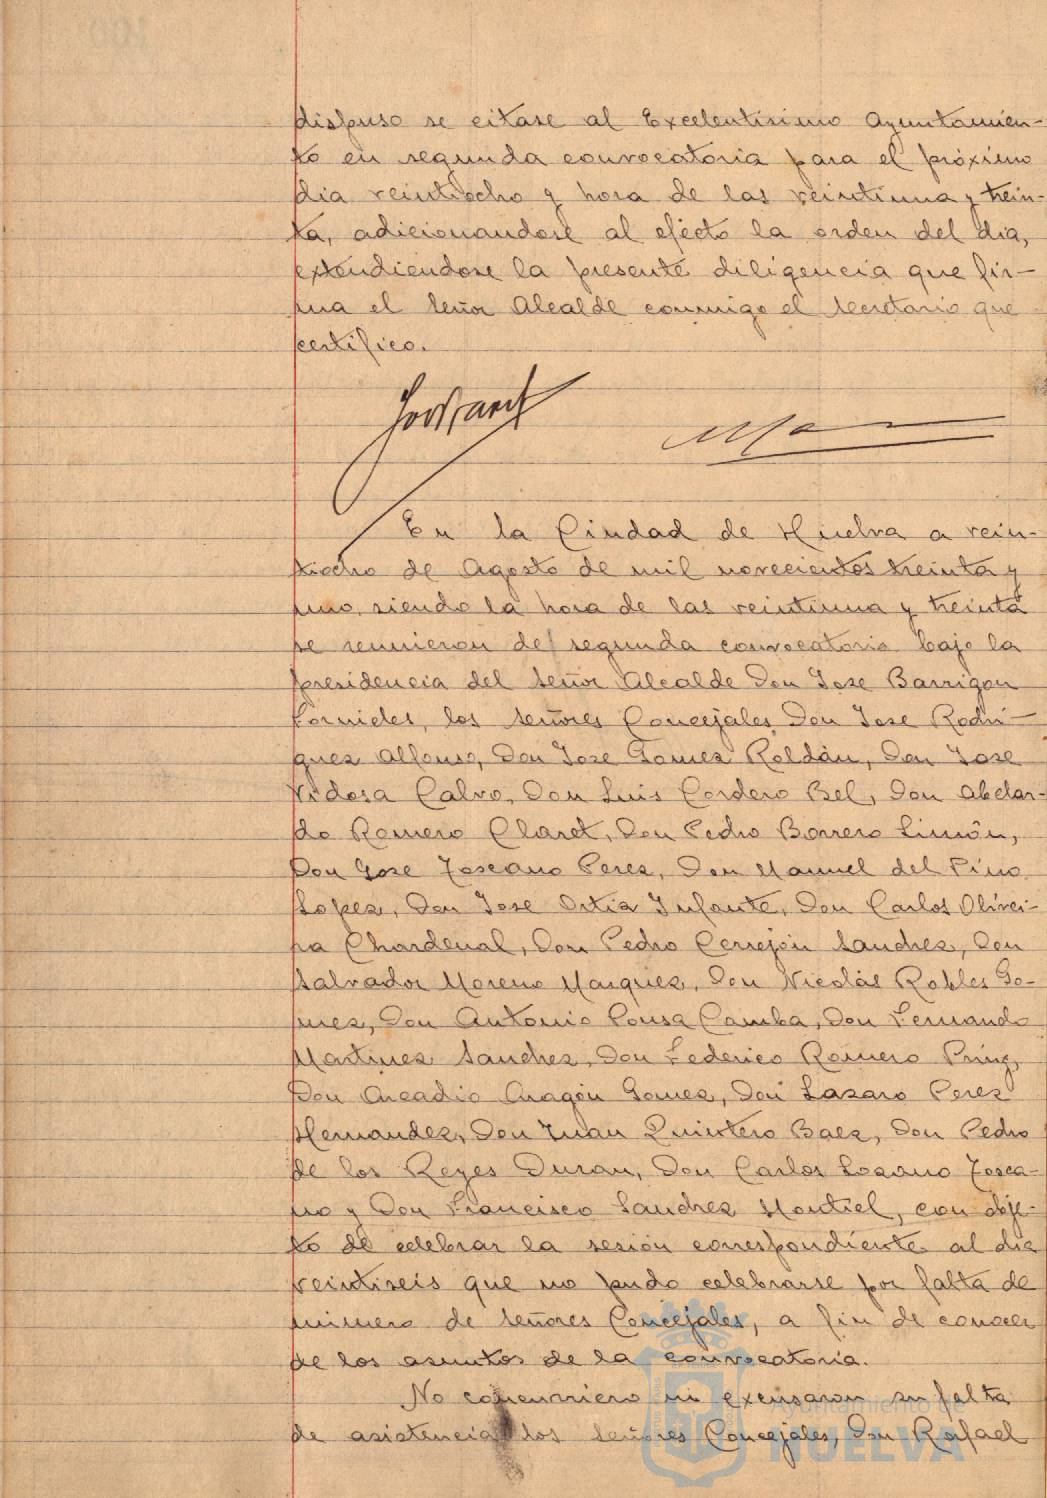 dispuso se citase al Excelentisimo Ayuntamien-
to en segunda convocatoria para el próximo
dia veintiocho y hora de las veintiuna y trein-
ta, adicionandose al efecto la orden del dia,
extendiendose la presente diligencia que fir-
ma el Señor Alcalde conmigo el Secretario que
certifico.
En la Ciudad de Huelva a vein-
tiocho de Agosto de mil novecientos treinta y
uno, siendo la hora de las veintiuna y treinta
se reunieron de segunda convocatoria bajo la
presidencia del Señor Alcalde Don Jose Barrigon
Fornieles, los Señores Concejales Don Jose Rodri-
guez Alfonso, Don Jose Gomez Roldán, Don Jose
Vidosa Calvo, Don Luis Cordero Bel, Don Abelar-
do Romero Claret, Don Pedro Borrero Limón,
Don Jose Toscano Perez, Don Manuel del Pino
Lopez, Don Jose Ortiz Infante, Don Carlos Olivei-
ra Chardenal, Don Pedro Cerrejón Sanchez, Don
Salvador Moreno Marquez, Don Nicolás Robles Go-
mez, Don Antonio Pousa Camba, Don Fernando
Martinez Sanchez, Don Federico Romero
Don Arcadio Aragón Gomez, Don Lazaro Perez
Hernandez, Don Juan Quintero Baez, Don Pedro
de los Reyes Duran, Don Carlos Lozano Tosca-
no y Don Francisco Sanchez Montiel, con obje-
to de celebrar la sesión correspondiente al dia
veintiseis que no pudo celebrarse por falta de
número de Señores Concejales, a fin de conocer
de los asuntos de la convocatoria.
No concurriero ni excusaron su falta
de asistencia los Señores Concejales, Don Rafael
Ayuntamiento de
HUELVA